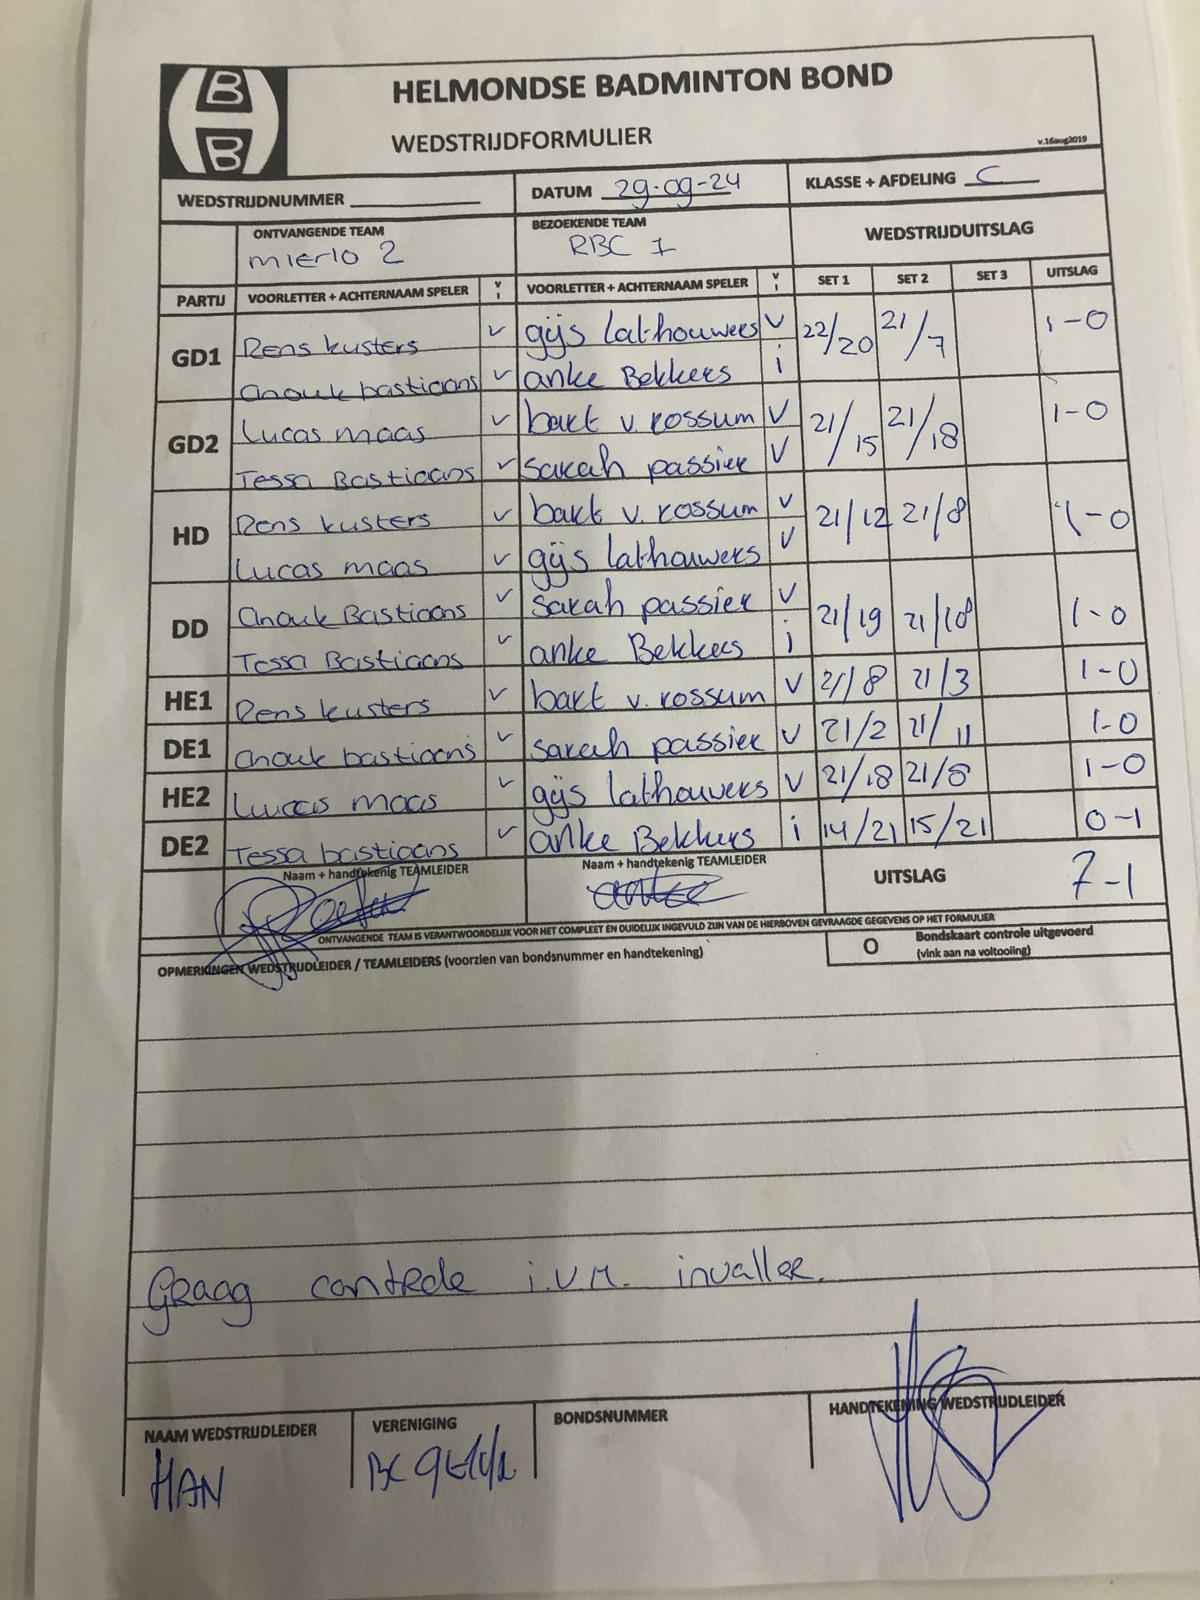 B
B
HELMONDSE BADMINTON BOND
WEDSTRIJDFORMULIER
v.16aug2019
WEDSTRIJDNUMMER
DATUM 29-09-24
KLASSE + AFDELING C
ONTVANGENDE TEAM
mierlo 2
BEZOEKENDE TEAM
RBC 1
WEDSTRIJDUITSLAG
PARTIJ VOORLETTER + ACHTERNAAM SPELER V I VOORLETTER + ACHTERNAAM SPELER V I SET 1 SET 2 SET 3 UITSLAG
GD1 Rens kusters v gijs lathouwers v 22/20 21/7 1-0
Anouk bastiaans v anke Bekkers i
GD2 Lucas maas v bart v. rossum v 21/15 21/18 1-0
Tessa Bastiaans v sarah passier v
HD Rens kusters v bart v. rossum v 21/12 21/8 1-0
Lucas maas v gijs lathouwers v
DD Anouk Bastiaans v sarah passier v 21/19 21/18 1-0
Tessa Bastiaans v anke Bekkers i
HE1 Rens kusters v bart v. rossum v 21/8 21/3 1-0
DE1 Anouk bastiaans v sarah passier v 21/2 21/11 1-0
HE2 Lucas maas v gijs lathouwers v 21/18 21/8 1-0
DE2 Tessa bastiaans v anke Bekkers i 14/21 15/21 0-1
Naam + handtekenig TEAMLEIDER
Naam + handtekenig TEAMLEIDER
UITSLAG 7-1
ONTVANGENDE TEAM IS VERANTWOORDELIJK VOOR HET COMPLEET EN DUIDELIJK INGEVULD ZIJN VAN DE HIERBOVEN GEVRAAGDE GEGEVENS OP HET FORMULIER
OPMERKINGEN WEDSTRIJDLEIDER / TEAMLEIDERS (voorzien van bondsnummer en handtekening)
O Bondskaart controle uitgevoerd
(vink aan na voltooiing)
Graag controle i.v.m. invaller.
NAAM WEDSTRIJDLEIDER
HAN
VERENIGING
BC
BONDSNUMMER
HANDTEKENING WEDSTRIJDLEIDER